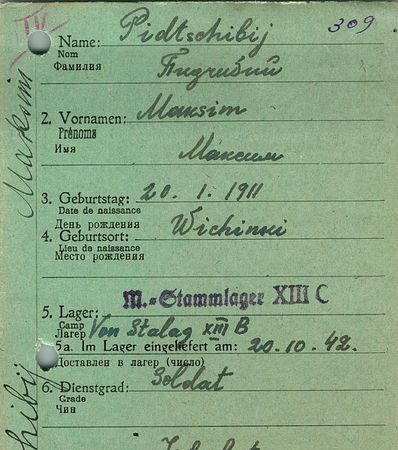 IV 309
Name: Pidtschibij
Nom
Фамилия Пидгибий
2. Vornamen: Maksim
Prénoms
Имя Максим
3. Geburtstag: 20. 1. 1911
Date de naissance
День рождения
4. Geburtsort: Wichinski
Lieu de naissance
Место рождения
5. Lager: M.-Stammlager XIII C
Camp
Лагерь Von Stalag XIII B
5a. Im Lager eingeliefert am: 20.10.42.
Доставлен в лагерь (число)
6. Dienstgrad: Soldat
Grade
Чин
Maksim